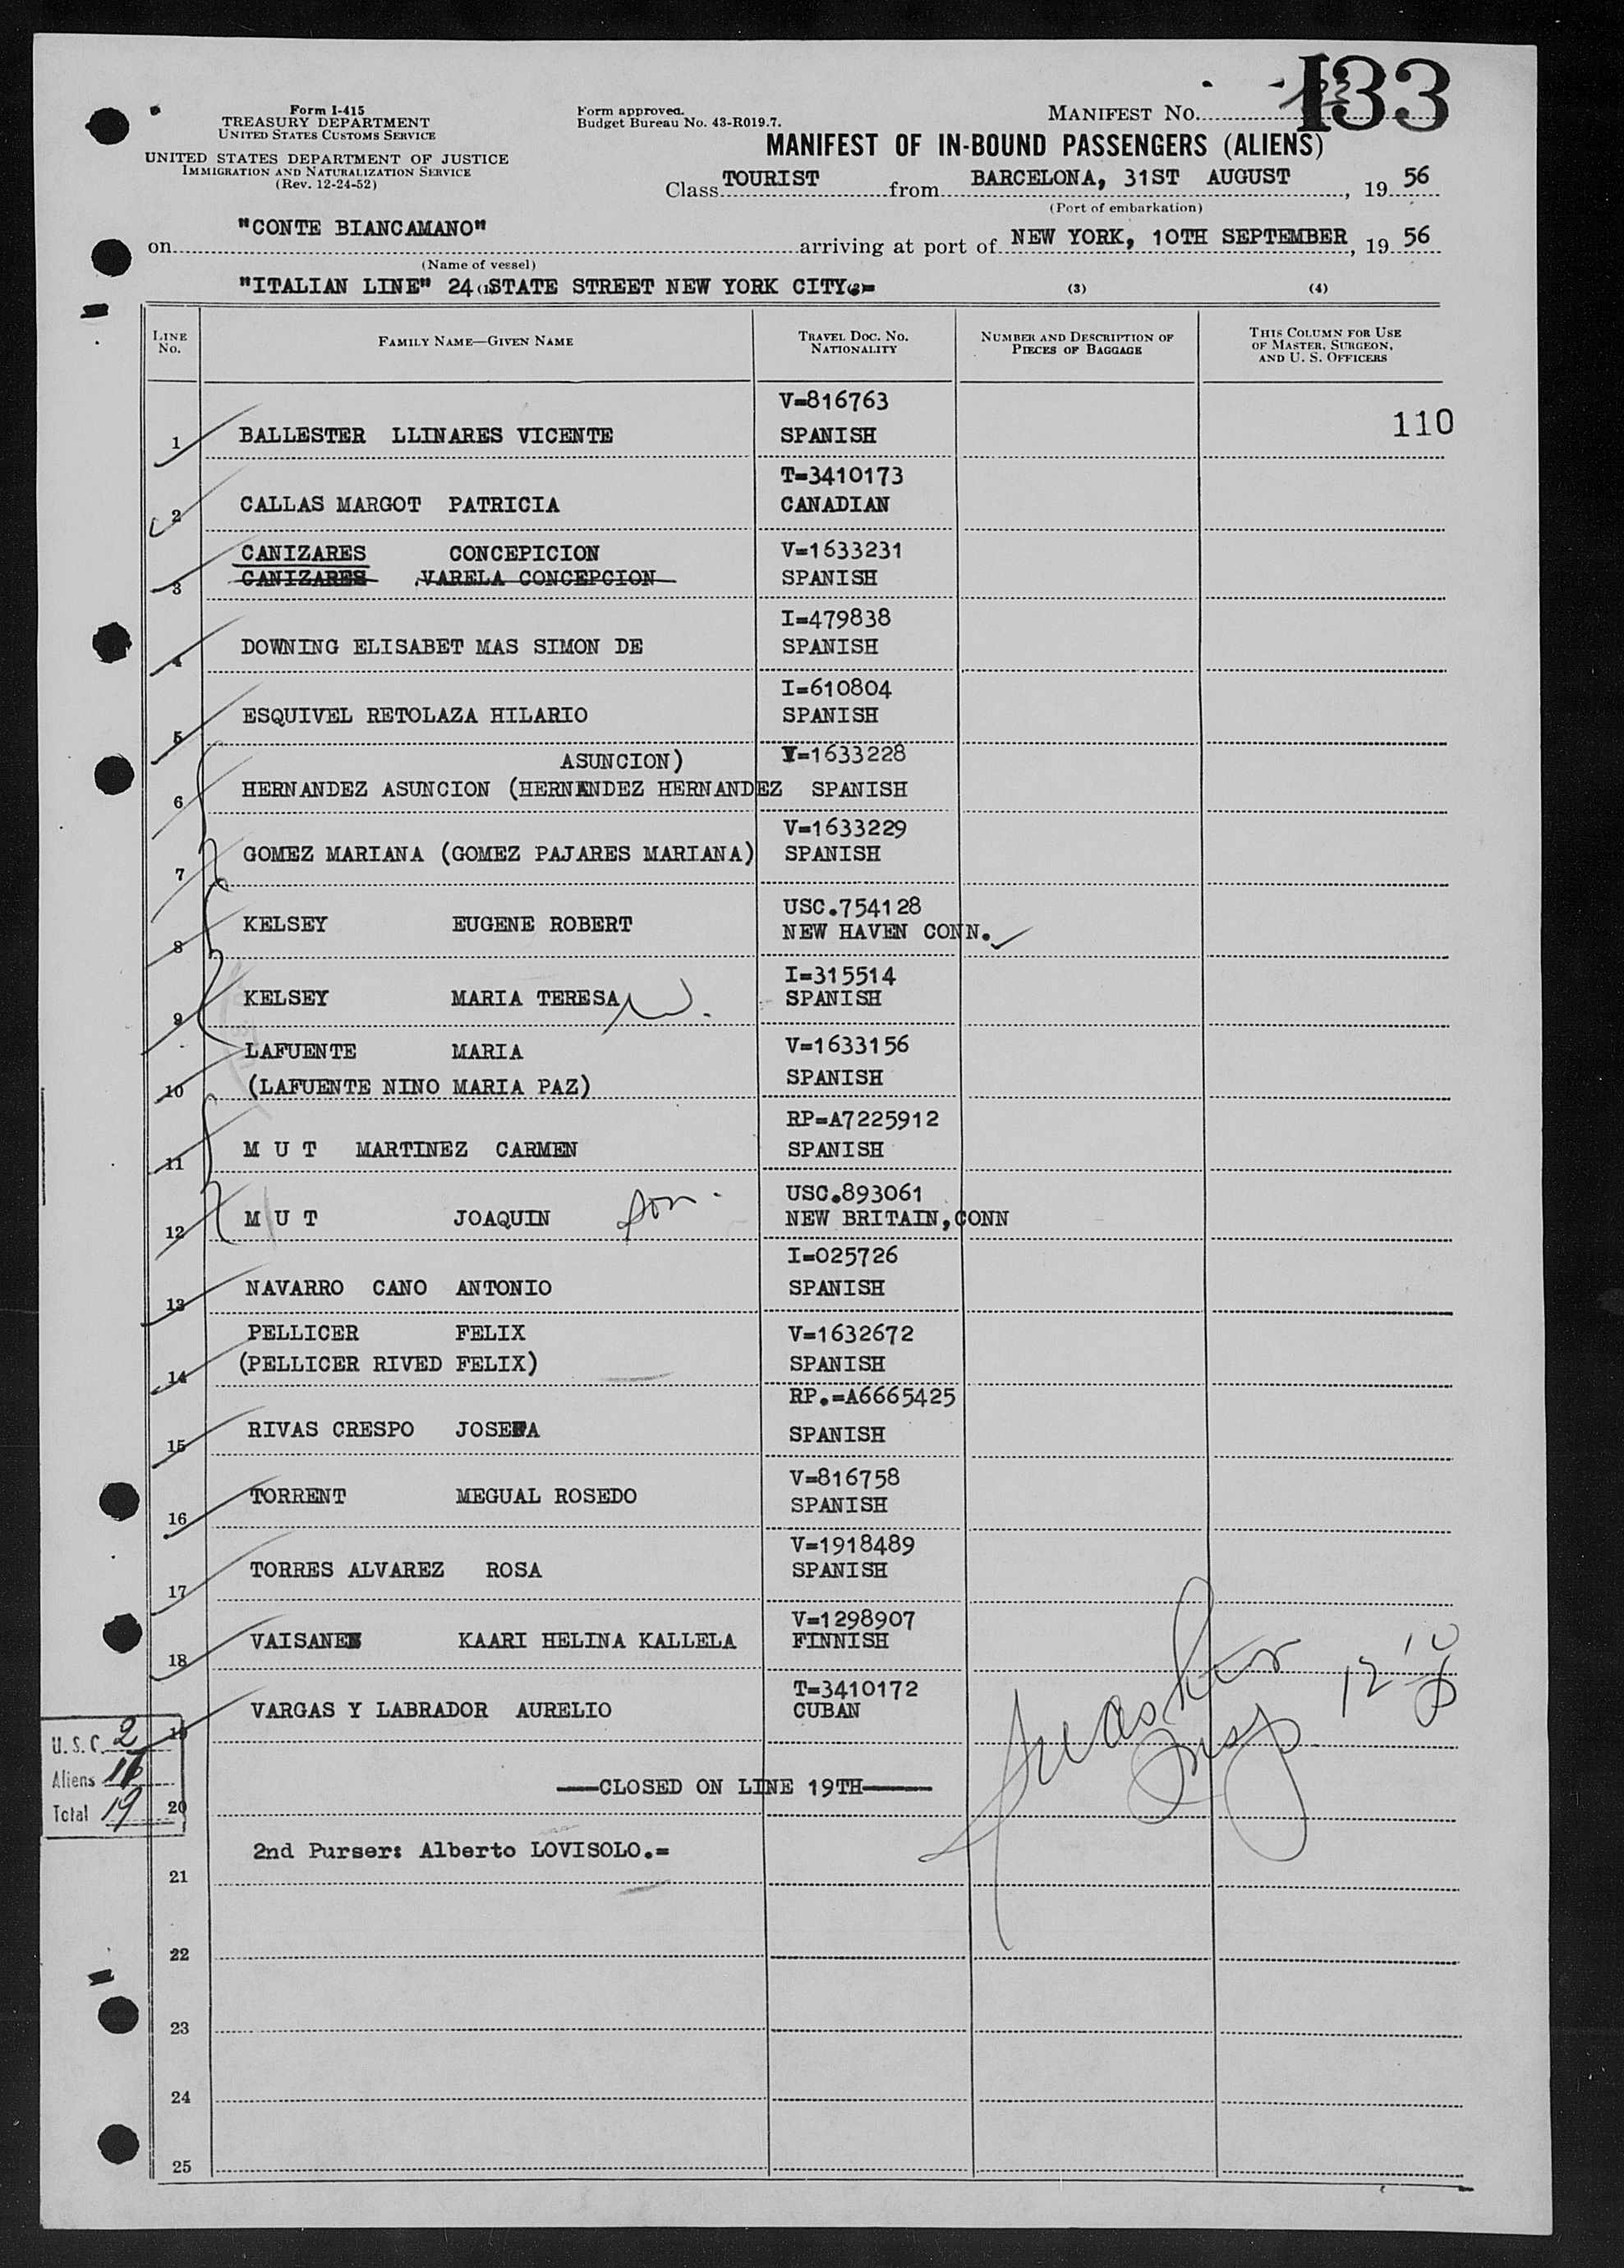 133
Form I-415
TREASURY DEPARTMENT
UNITED STATES CUSTOMS SERVICE
Form approved.
Budget Bureau No. 43-R019.7.
MANIFEST NO.
UNITED STATES DEPARTMENT OF JUSTICE
IMMIGRATION AND NATURALIZATION SERVICE
(Rev. 12-24-52)
MANIFEST OF IN-BOUND PASSENGERS (ALIENS)
Class TOURIST from BARCELONA, 31ST AUGUST, 19 56
(Port of embarkation)
on "CONTE BIANCAMANO" arriving at port of NEW YORK, 10TH SEPTEMBER, 19 56
(Name of vessel)
"ITALIAN LINE" 24 STATE STREET NEW YORK CITY (3) (4)
LINE NO. FAMILY NAME—GIVEN NAME TRAVEL DOC. NO. NATIONALITY NUMBER AND DESCRIPTION OF PIECES OF BAGGAGE THIS COLUMN FOR USE OF MASTER, SURGEON, AND U. S. OFFICERS
V=816763
1 BALLESTER LLINARES VICENTE SPANISH 110
T=3410173
2 CALLAS MARGOT PATRICIA CANADIAN
CANIZARES CONCEPICION V=1633231
3 CANIZARES VARELA CONCEPCION SPANISH
I=479838
4 DOWNING ELISABET MAS SIMON DE SPANISH
I=610804
5 ESQUIVEL RETOLAZA HILARIO SPANISH
ASUNCION) V=1633228
6 HERNANDEZ ASUNCION (HERNANDEZ HERNANDEZ SPANISH
V=1633229
7 GOMEZ MARIANA (GOMEZ PAJARES MARIANA) SPANISH
USC.754128
8 KELSEY EUGENE ROBERT NEW HAVEN CONN.
I=315514
9 KELSEY MARIA TERESA SPANISH
LAFUENTE MARIA V=1633156
10 (LAFUENTE NINO MARIA PAZ) SPANISH
RP=A7225912
11 M U T MARTINEZ CARMEN SPANISH
USC.893061
12 M U T JOAQUIN son. NEW BRITAIN, CONN
I=025726
13 NAVARRO CANO ANTONIO SPANISH
PELLICER FELIX V=1632672
14 (PELLICER RIVED FELIX) SPANISH
RP.=A6665425
15 RIVAS CRESPO JOSEFA SPANISH
V=816758
16 TORRENT MEGUAL ROSEDO SPANISH
V=1918489
17 TORRES ALVAREZ ROSA SPANISH
V=1298907
18 VAISANEN KAARI HELINA KALLELA FINNISH
T=3410172
19 VARGAS Y LABRADOR AURELIO CUBAN
U. S. C. 2
Aliens 17
Total 19
20 ——CLOSED ON LINE 19TH——
21 2nd Purser: Alberto LOVISOLO.=
22
23
24
25